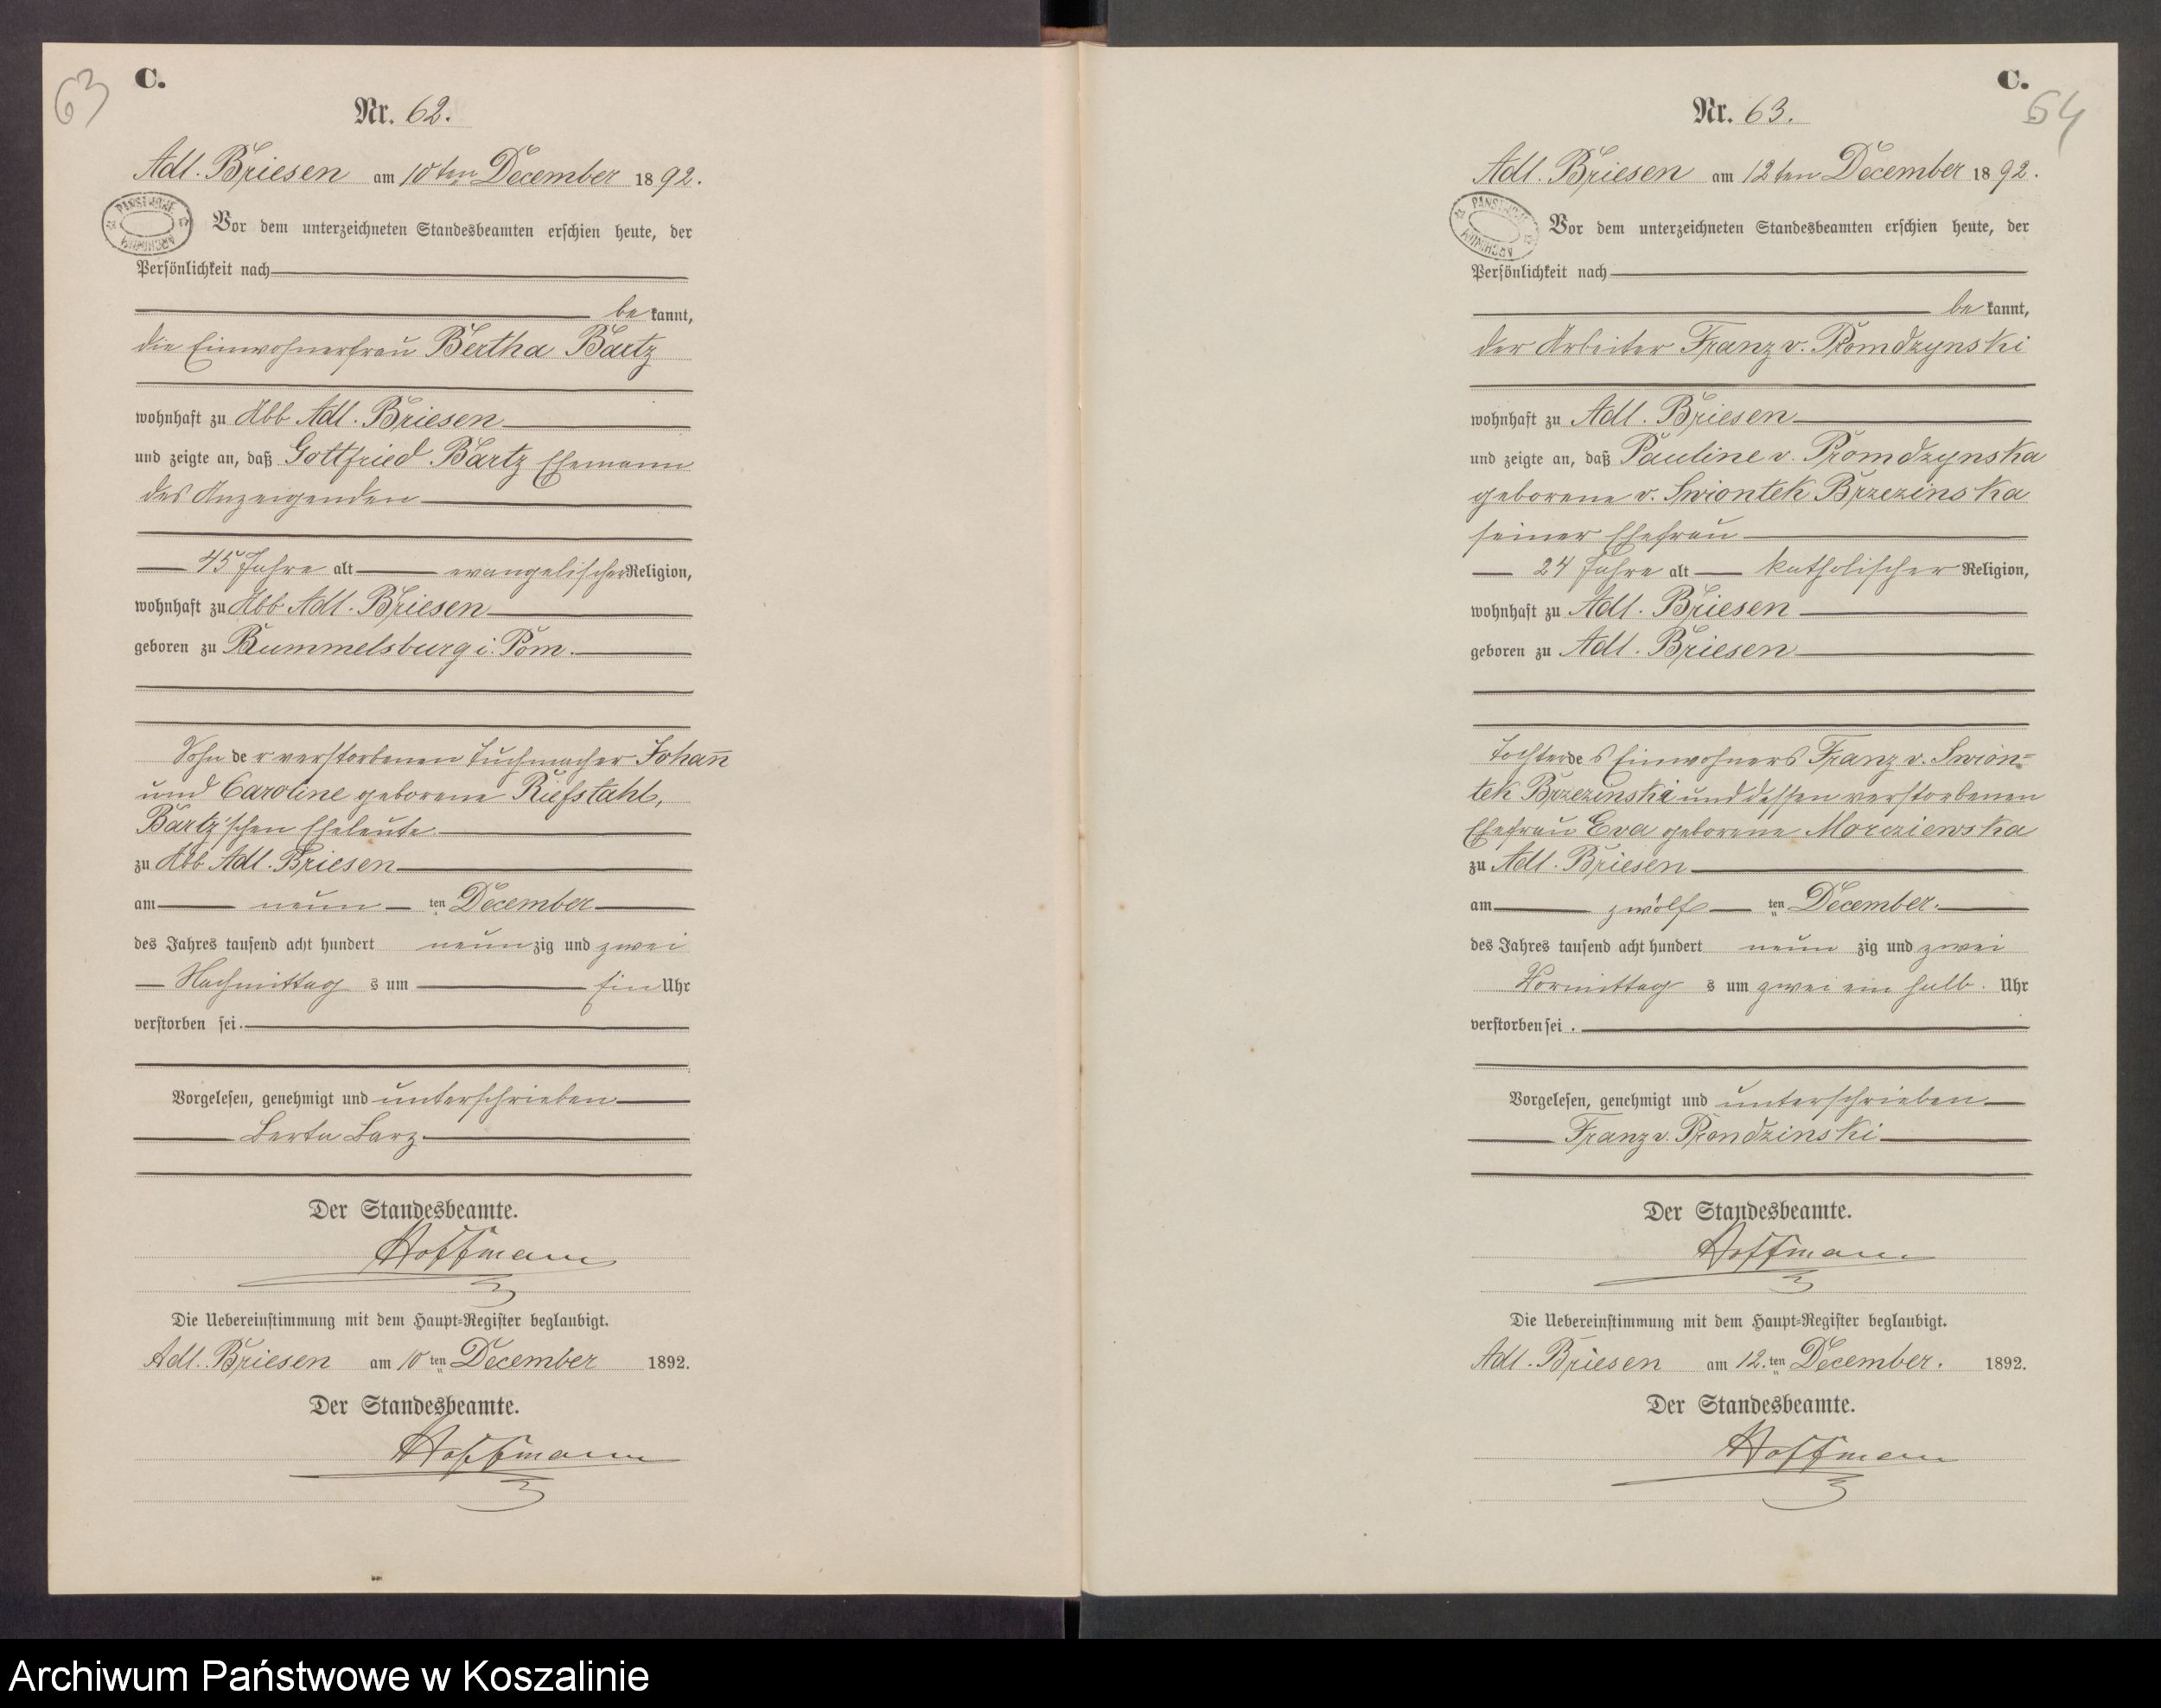 63
C.
Nr. 62.
Adl. Briesen am 10ten December 1892.
PAŃSTWOWE ARCHIWUM
Vor dem unterzeichneten Standesbeamten erschien heute, der
Persönlichkeit nach
be kannt,
die Einwohnerfrau Bertha Bartz
wohnhaft zu Abb Adl. Briesen
und zeigte an, daß Gottfried Bartz Ehemann
des Anzeigenden
45 Jahre alt evangelischer Religion,
wohnhaft zu Abb Adl. Briesen
geboren zu Rummelsburg i. Pom.
Sohn de r verstorbenen Tuchmacher Johann
und Caroline geborene Riefstahl,
Bartz'schen Eheleute.
zu Abb Adl. Briesen
am neun ten December
des Jahres tausend acht hundert neun zig und zwei
Nachmittag s um Ein Uhr
verstorben sei.
Vorgelesen, genehmigt und unterschrieben
Berta Barz.
Der Standesbeamte.
Hoffmann
Die Uebereinstimmung mit dem Haupt-Register beglaubigt.
Adl. Briesen am 10 ten December 1892.
Der Standesbeamte.
Hoffmann
C.
64
Nr. 63.
Adl. Briesen am 12ten December 1892.
PAŃSTWOWE ARCHIWUM
Vor dem unterzeichneten Standesbeamten erschien heute, der
Persönlichkeit nach
be kannt,
der Arbeiter Franz v. Promdzynski
wohnhaft zu Adl. Briesen
und zeigte an, daß Pauline v. Promdzynska
geborene v. Swiontek Brzezinska
seiner Ehefrau
24 Jahre alt katholischer Religion,
wohnhaft zu Adl. Briesen
geboren zu Adl. Briesen
Tochter de s Einwohners Franz v. Swion-
tek Brzezinski und dessen verstorbenen
Ehefrau Eva geborene
zu Adl. Briesen
am zwölf ten December.
des Jahres tausend acht hundert neun zig und zwei
Vormittag s um zwei ein halb. Uhr
verstorben sei.
Vorgelesen, genehmigt und unterschrieben
Franz v. Prondzinski
Der Standesbeamte.
Hoffmann
Die Uebereinstimmung mit dem Haupt-Register beglaubigt.
Adl. Briesen am 12. ten December. 1892.
Der Standesbeamte.
Hoffmann
Archiwum Państwowe w Koszalinie